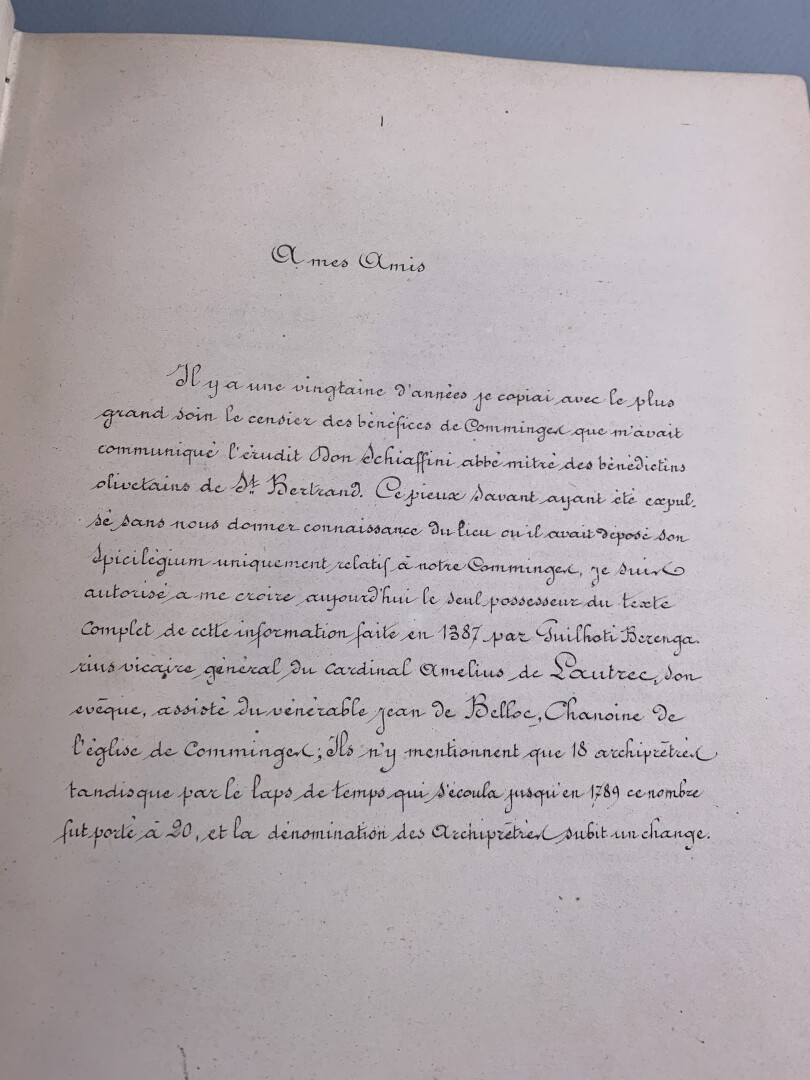 1
A mes Amis
Il y a une vingtaine d'années je copiai avec le plus
grand soin le censier des bénéfices de Comminges que m'avait
communiqué l'érudit Don Schiaffini abbé mitré des bénédictins
olivetains de St Bertrand. Ce pieux savant ayant été expul-
sé sans nous donner connaissance du lieu ou il avait déposé son
Spicilégium uniquement relatif à notre Comminges, je suis
autorisé a me croire aujourd'hui le seul possesseur du texte
complet de cette information faite en 1387 par Guilhoti Berenga-
rius vicaire général du cardinal Amelius de Lautrec, son
evêque, assisté du vénérable jean de Belloc, Chanoine de
l'église de Comminges; Ils n'y mentionnent que 18 archiprêtrés
tandisque par le laps de temps qui s'écoula jusqu'en 1789 ce nombre
fut porté à 20, et la dénomination des Archiprêtrés subit un change-